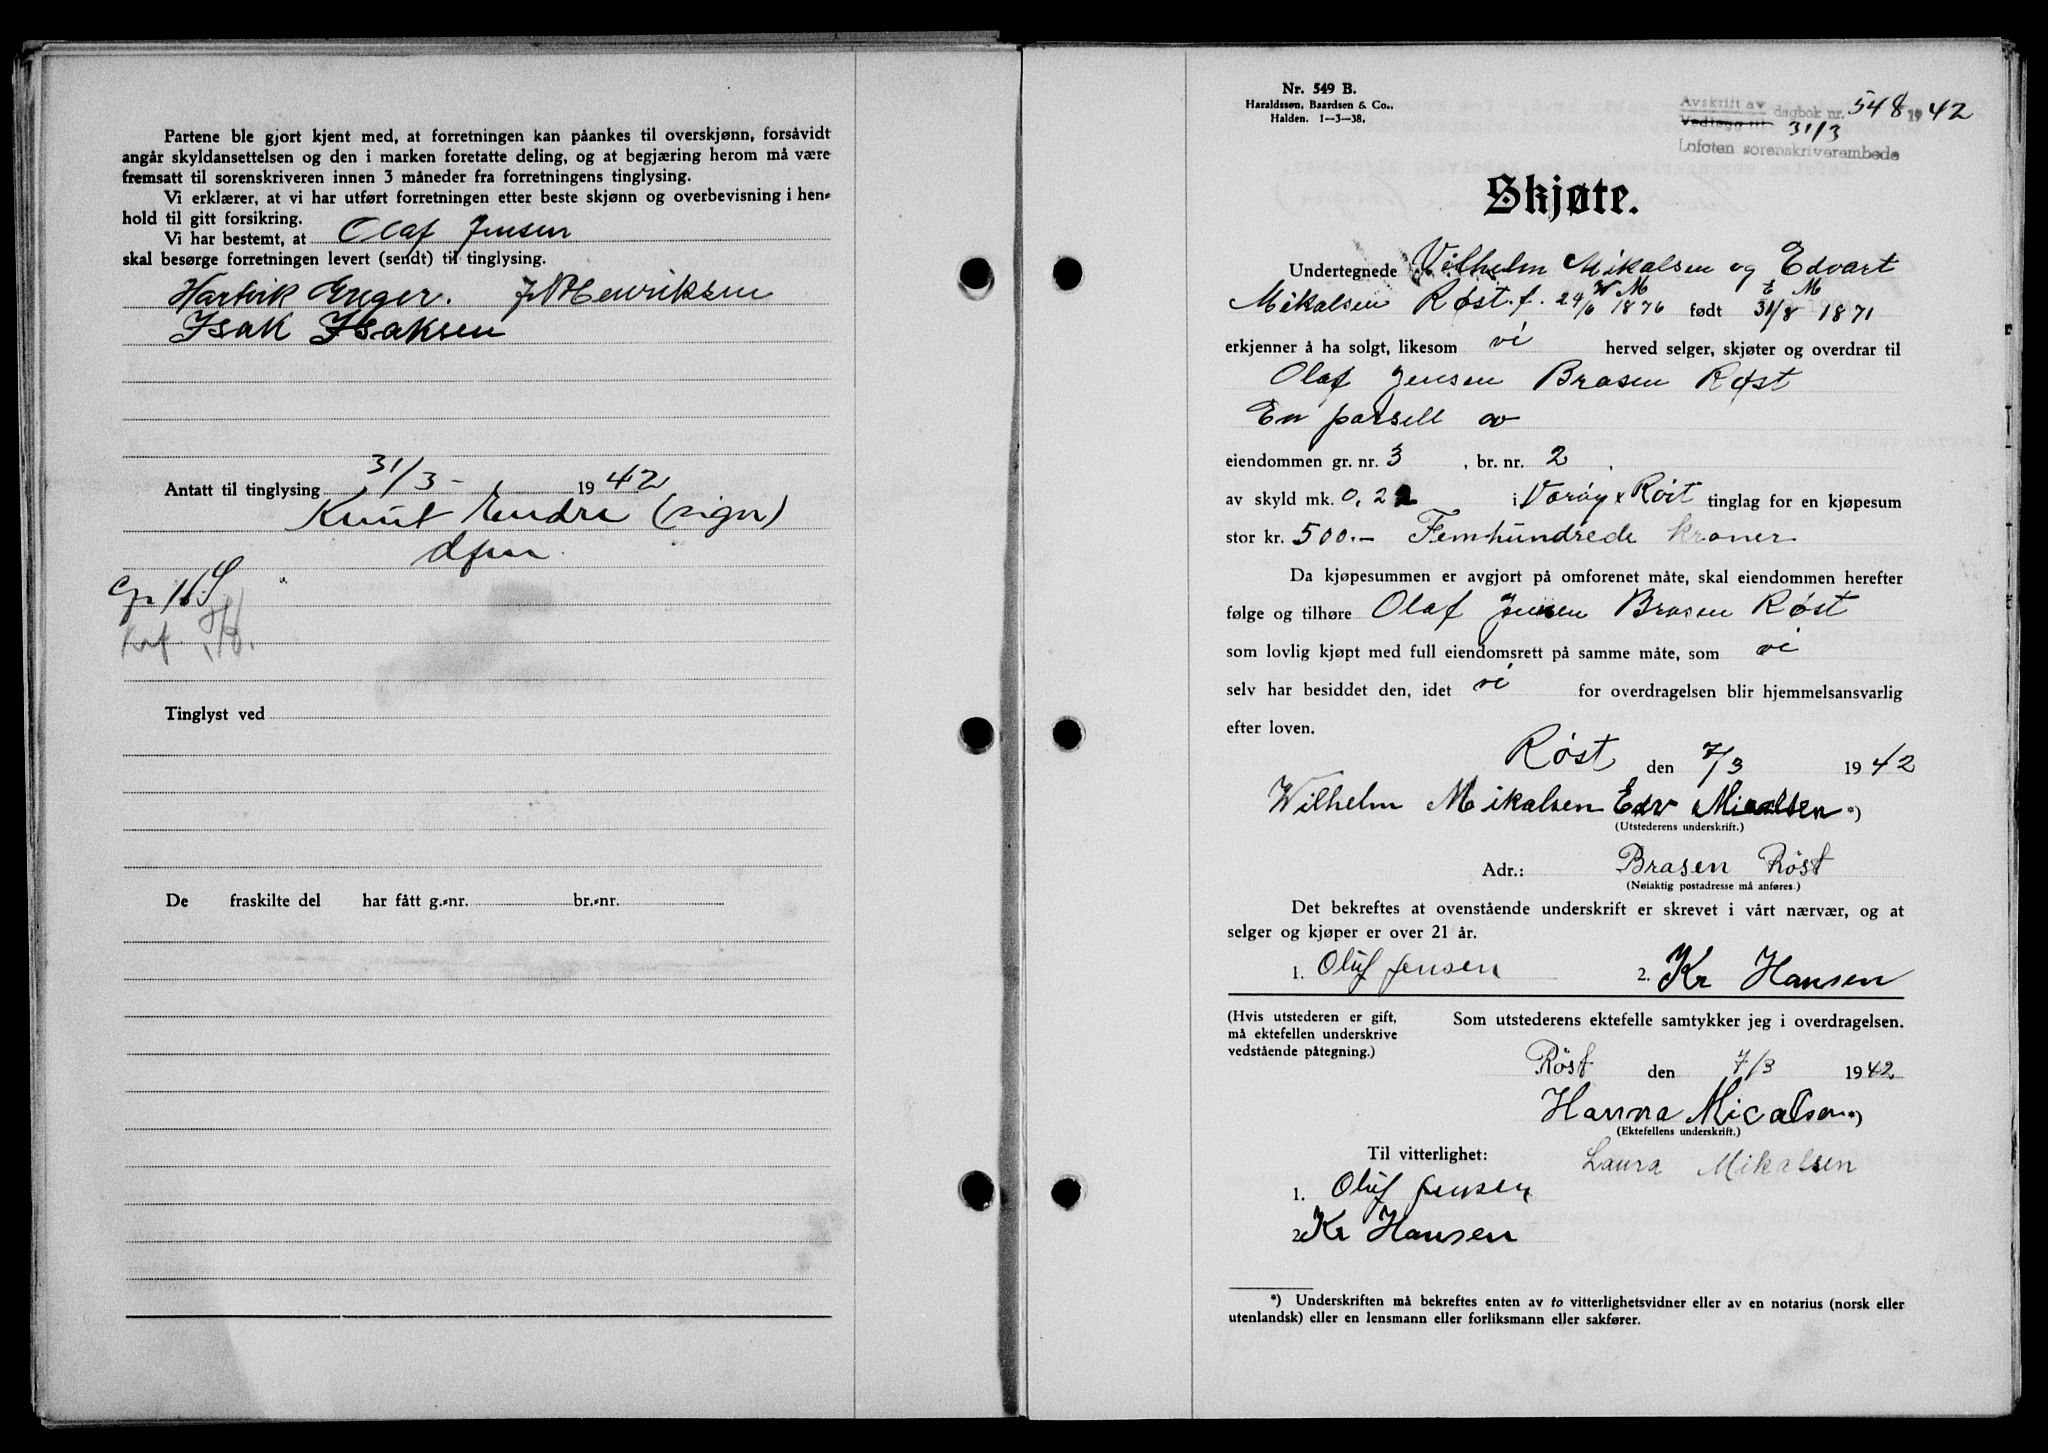 Partene ble gjort kjent med, at forretningen kan påankes til overskjønn, forsåvidt
angår skyldansettelsen og den i marken foretatte deling, og at begjæring herom må være
fremsatt til sorenskriveren innen 3 måneder fra forretningens tinglysing.
Vi erklærer, at vi har utført forretningen etter beste skjønn og overbevisning i hen-
hold til gitt forsikring.
Vi har bestemt, at Olaf Jensen
skal besørge forretningen levert (sendt) til tinglysing.
Hartvik Enger. J N Henriksen
Isak Isaksen
Antatt til tinglysing 31/3- 1942
Knut Endre (sign)
dfm
Tinglyst ved
De fraskilte del har fått g.-nr. br.-nr.
Nr. 549 B.
Haraldssøn, Baardsen & Co.,
Halden. 1—3—38.
Avskrift av
Vedlegg til dagbok nr. 548 1942
31/3
Lofoten sorenskriverembede
Skjøte.
Undertegnede Vilhelm Mikalsen og Edvart
W M E M
Mikalsen Røst f. 29/6 1876 født 31/8 1871
erkjenner å ha solgt, likesom vi herved selger, skjøter og overdrar til
Olaf Jensen Brasen Røst
En parsell av
eiendommen gr. nr. 3 , br. nr. 2 .
av skyld mk. 0,22 i Værøy & Røst tinglag for en kjøpesum
stor kr. 500.- Femhundrede kroner
Da kjøpesummen er avgjort på omforenet måte, skal eiendommen herefter
følge og tilhøre Olaf Jensen Brasen Røst
som lovlig kjøpt med full eiendomsrett på samme måte, som vi
selv har besiddet den, idet vi for overdragelsen blir hjemmelsansvarlig
efter loven.
Røst den 7/3 1942
Wilhelm Mikalsen Edv Micalsen *)
(Utstederens underskrift.)
Adr.: Brasen Röst
(Nøiaktig postadresse må anføres.)
Det bekreftes at ovenstående underskrift er skrevet i vårt nærvær, og at
selger og kjøper er over 21 år.
1. Oluf Jensen 2. Kr Hansen
(Hvis utstederen er gift,
må ektefellen underskrive
vedstående påtegning.)
Som utstederens ektefelle samtykker jeg i overdragelsen.
Röst den 7/3 1942
Hanna Micalsen *)
(Ektefellens underskrift.)
Til vitterlighet: Laura Mikalsen
1. Oluf Jensen
2. Kr Hansen
*) Underskriften må bekreftes enten av to vitterlighetsvidner eller av en notarius (norsk eller
utenlandsk) eller en lensmann eller forliksmann eller sakfører.